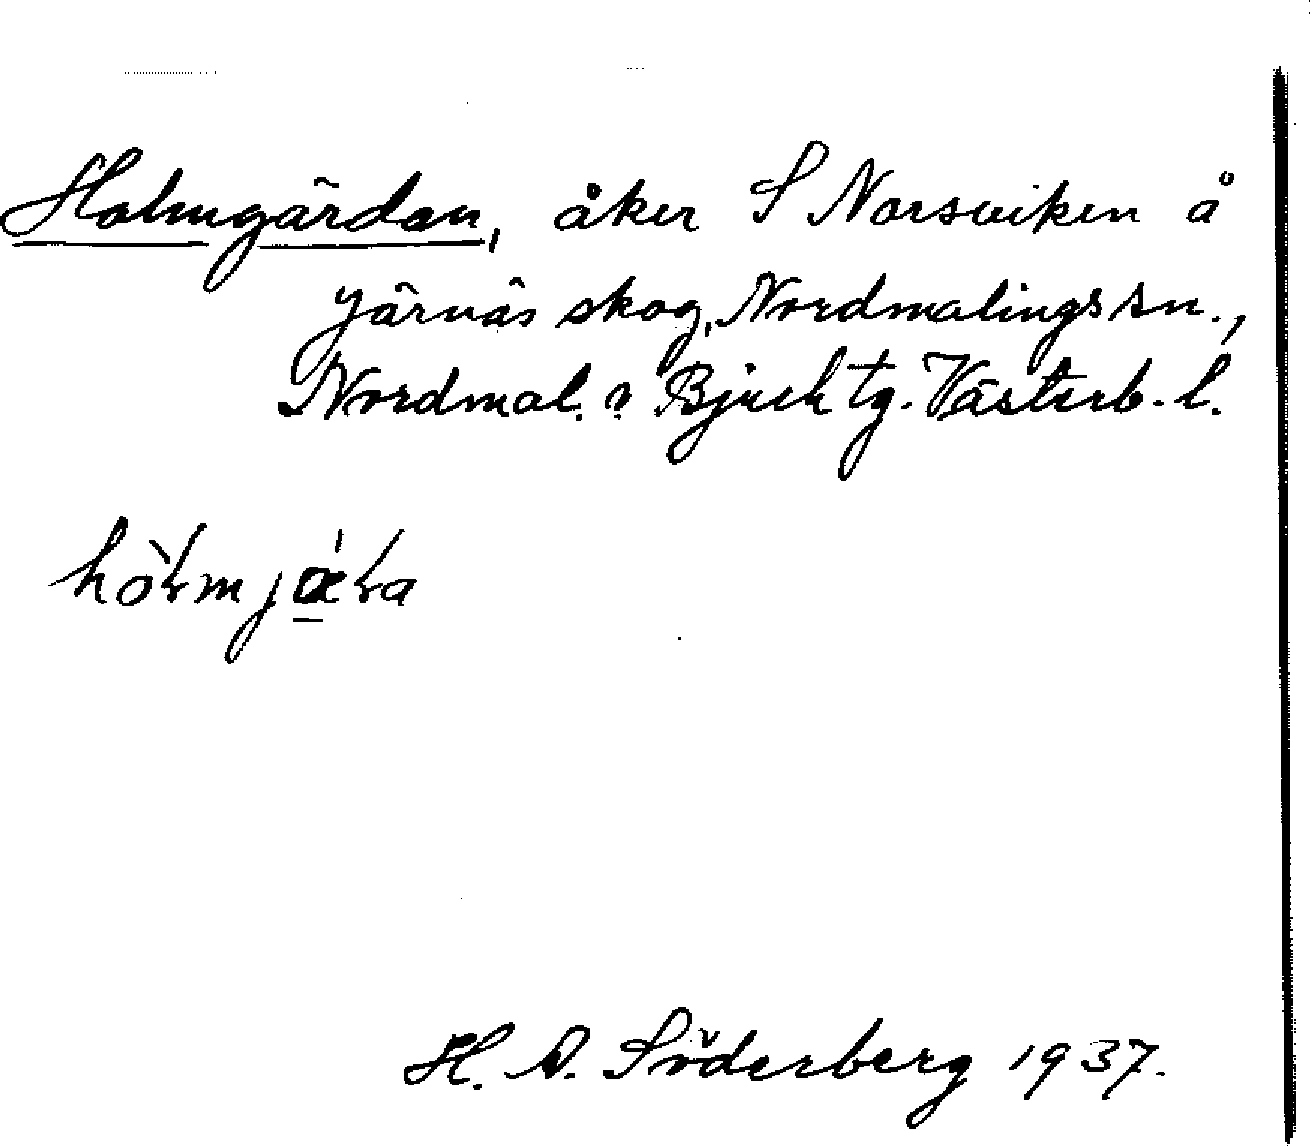 Holmgärdan, åker S Norsviken å
Järnäs skog, Nordmalings sn.,
Nordmal. o Bjurh tg. Västerb. l.
H. D. Söderberg 1937.